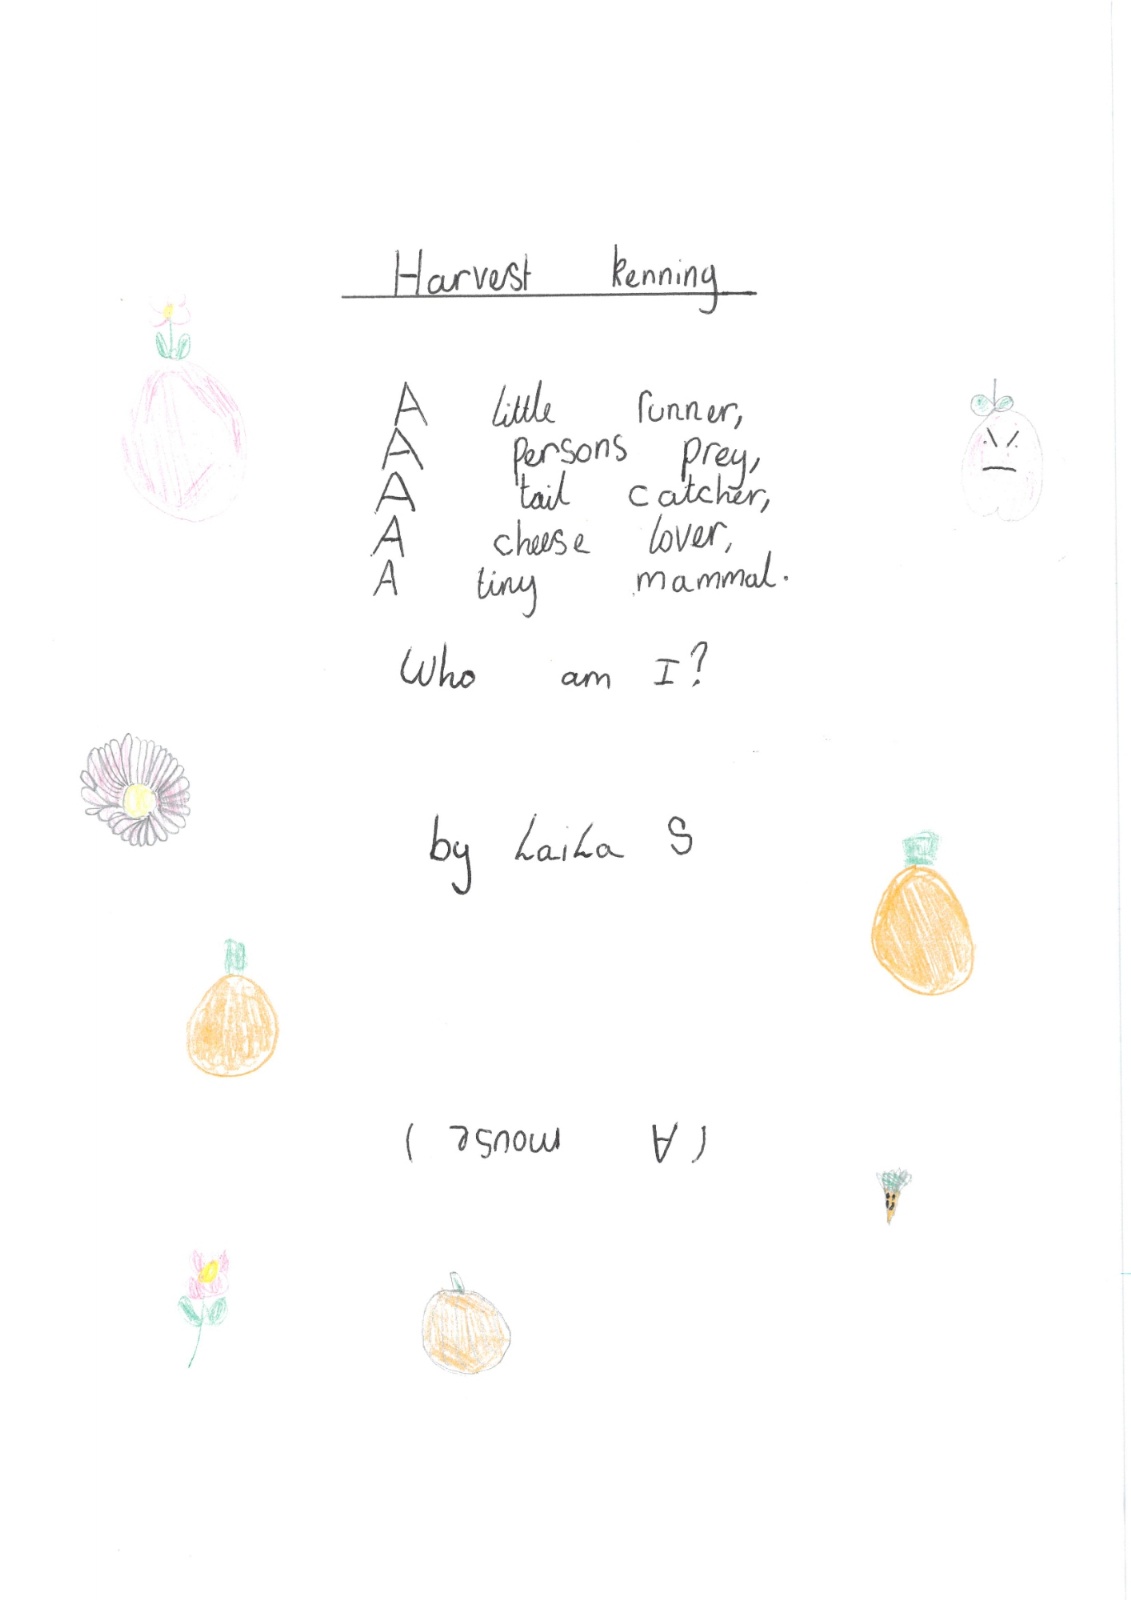 Harvest kenning
A little runner,
A persons prey,
A tail catcher,
A cheese lover,
A tiny mammal.
Who am I?
by LaiLa S
(A mouse)